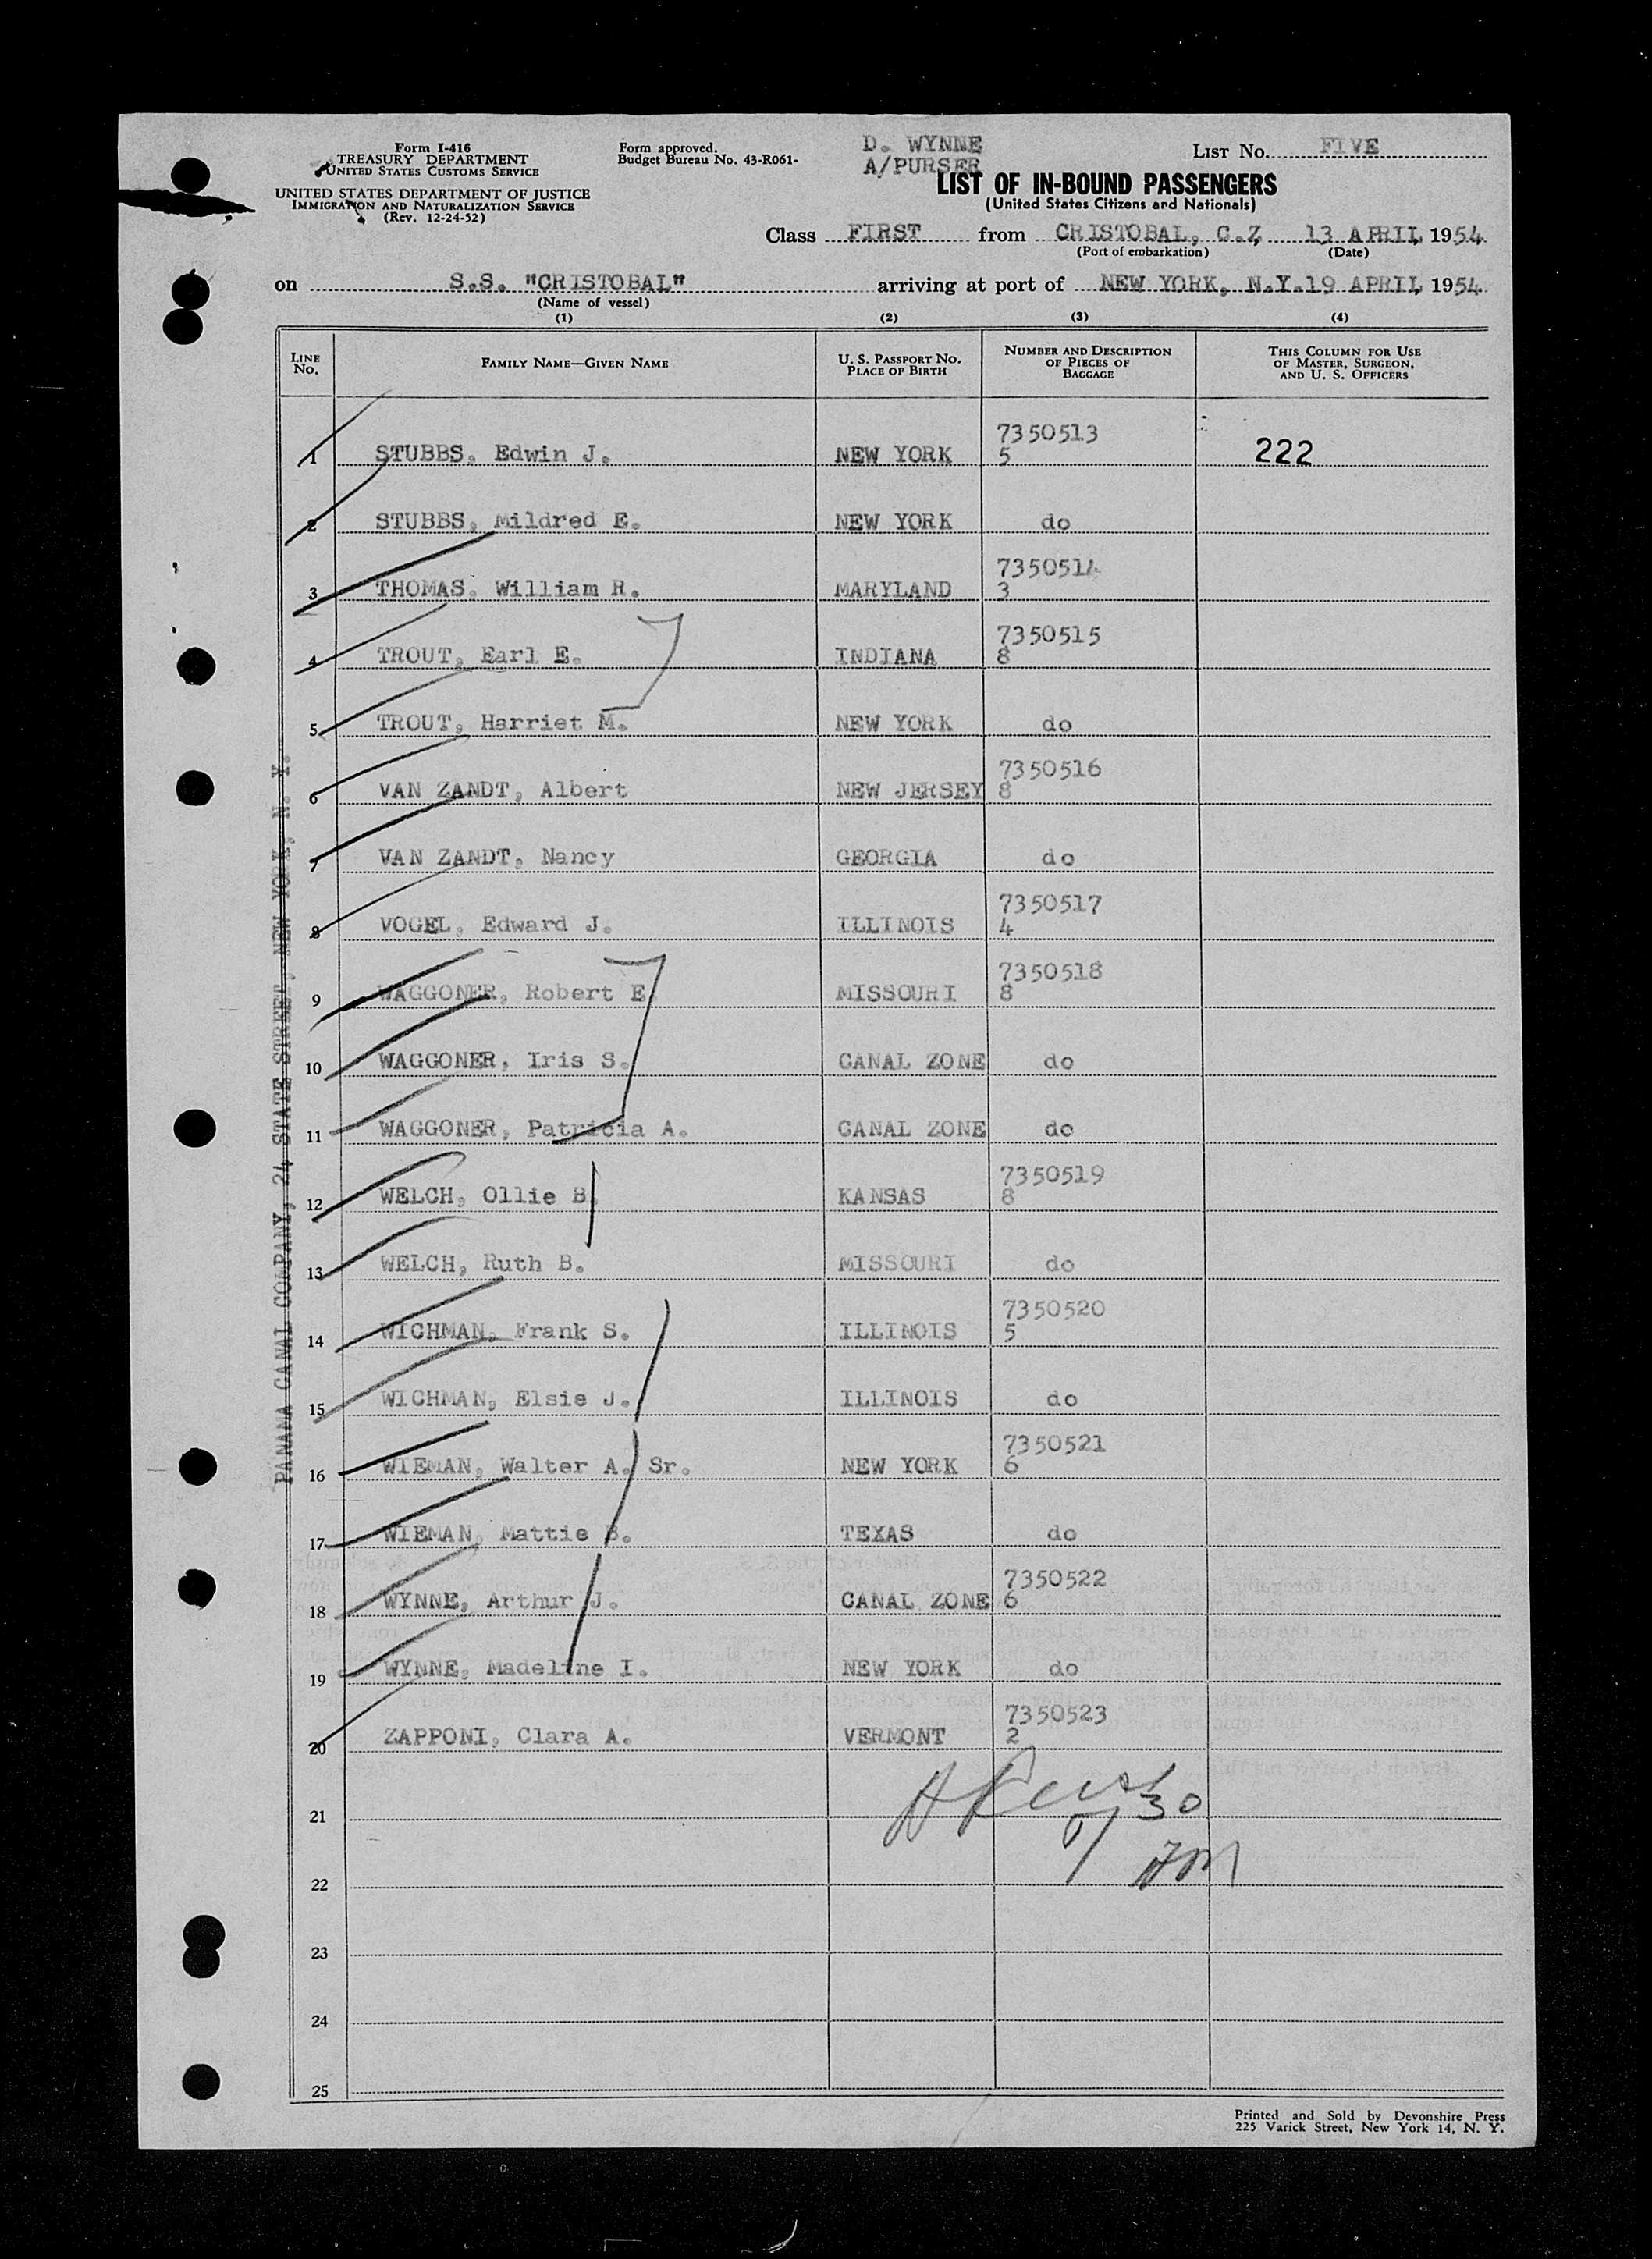 Form I-416
TREASURY DEPARTMENT
UNITED STATES CUSTOMS SERVICE
UNITED STATES DEPARTMENT OF JUSTICE
IMMIGRATION AND NATURALIZATION SERVICE
(Rev. 12-24-52)
Form approved.
Budget Bureau No. 43-R061-
D. WYNNE
A/PURSER
LIST No. FIVE
LIST OF IN-BOUND PASSENGERS
(United States Citizens and Nationals)
Class FIRST from CRISTOBAL, C.Z. 13 APRIL, 1954
(Port of embarkation) (Date)
on S.S. "CRISTOBAL" arriving at port of NEW YORK, N.Y. 19 APRIL, 1954
(Name of vessel)
(1) (2) (3) (4)
LINE No. FAMILY NAME—GIVEN NAME U. S. PASSPORT No. PLACE OF BIRTH NUMBER AND DESCRIPTION OF PIECES OF BAGGAGE THIS COLUMN FOR USE OF MASTER, SURGEON, AND U. S. OFFICERS
7350513
1 STUBBS, Edwin J. NEW YORK 5 222
2 STUBBS, Mildred E. NEW YORK do
7350514
3 THOMAS, William R. MARYLAND 3
7350515
4 TROUT, Earl E. INDIANA 8
5 TROUT, Harriet M. NEW YORK do
7350516
6 VAN ZANDT, Albert NEW JERSEY 8
7 VAN ZANDT, Nancy GEORGIA do
7350517
8 VOGEL, Edward J. ILLINOIS 4
7350518
9 WAGGONER, Robert E. MISSOURI 8
10 WAGGONER, Iris S. CANAL ZONE do
11 WAGGONER, Patricia A. CANAL ZONE do
7350519
12 WELCH, Ollie B. KANSAS 8
13 WELCH, Ruth B. MISSOURI do
7350520
14 WICHMAN, Frank S. ILLINOIS 5
15 WICHMAN, Elsie J. ILLINOIS do
7350521
16 WIEMAN, Walter A. Sr. NEW YORK 6
17 WIEMAN, Mattie B. TEXAS do
7350522
18 WYNNE, Arthur J. CANAL ZONE 6
19 WYNNE, Madeline I. NEW YORK do
7350523
20 ZAPPONI, Clara A. VERMONT 2
21
22
23
24
25
PANAMA CANAL COMPANY, 24 STATE STREET, NEW YORK, N. Y.
Printed and Sold by Devonshire Press
225 Varick Street, New York 14, N. Y.